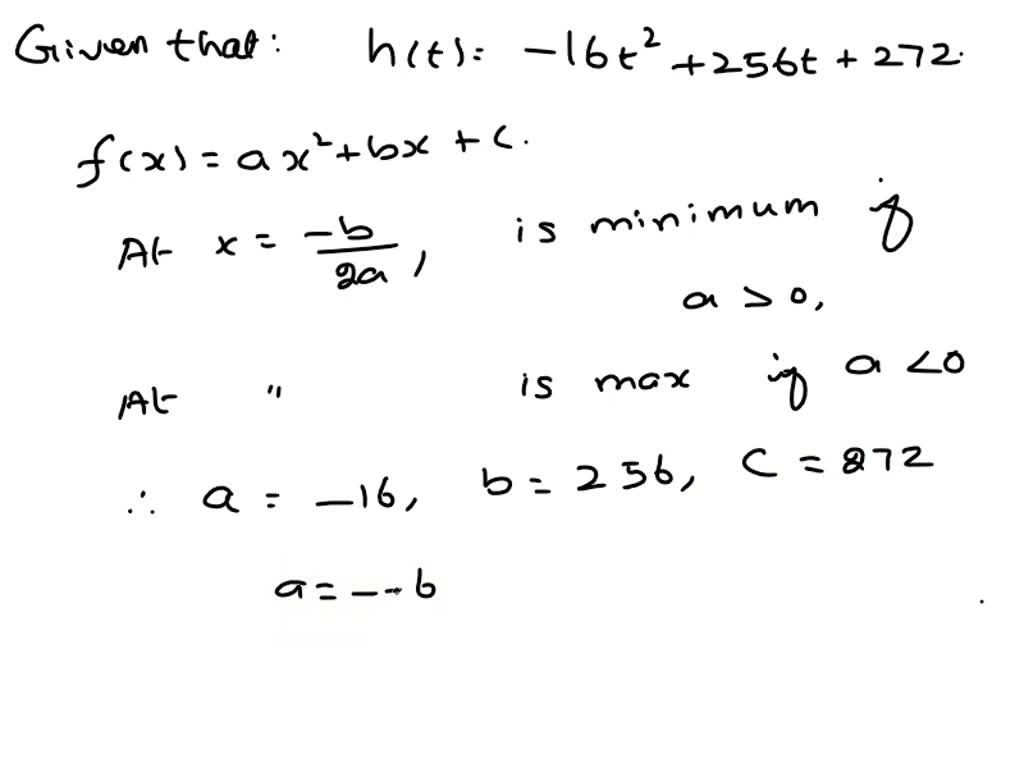 Given that: h(t) = -16t² + 256t + 272.
f(x) = ax² + bx + c.
At x = -b/2a, is minimum if
a > 0,
At " is max if a < 0
∴ a = -16, b = 256, C = 272
a = --6